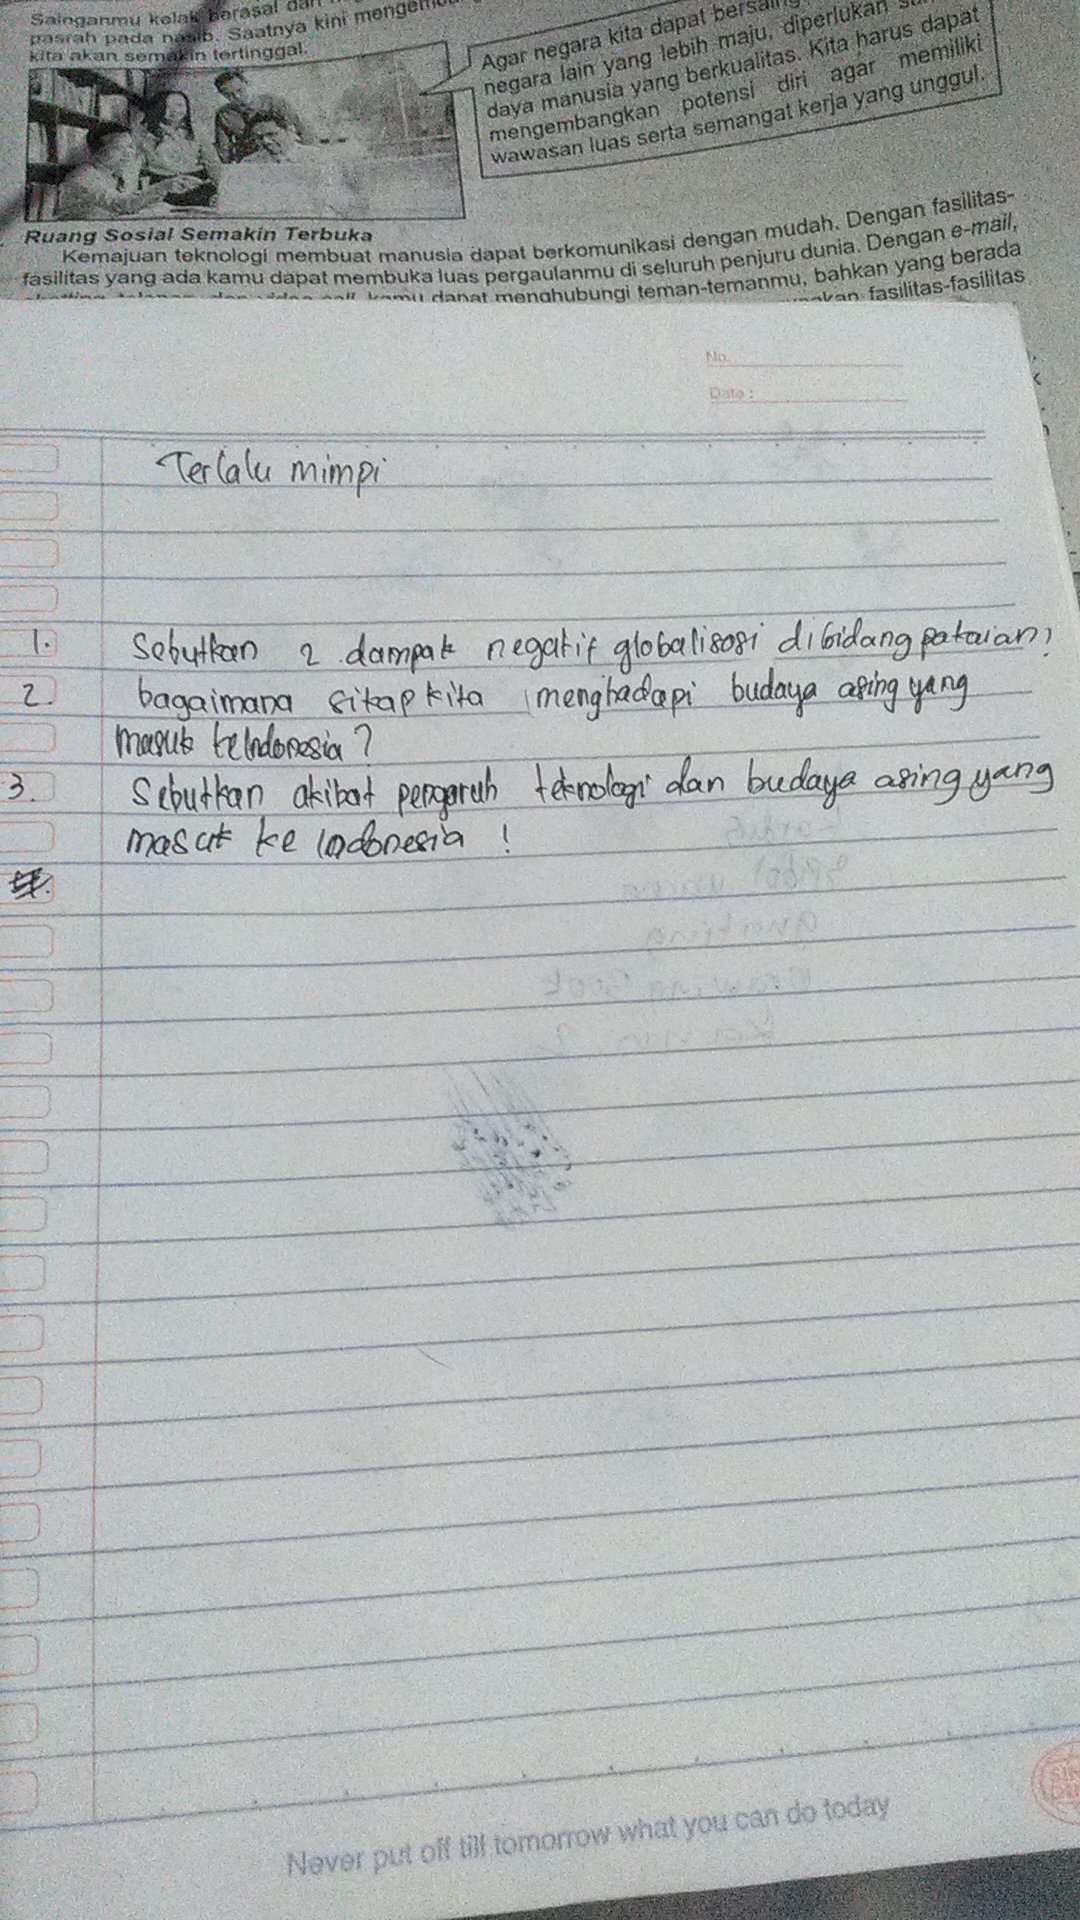 Sainganmu kelak berasal dari
pasrah pada nasib. Saatnya kini
kita akan semakin tertinggal.
Agar negara kita dapat bersaing
negara lain yang lebih maju, diperlukan
daya manusia yang berkualitas. Kita harus dapat
mengembangkan potensi diri agar memiliki
wawasan luas serta semangat kerja yang unggul.
Ruang Sosial Semakin Terbuka
Kemajuan teknologi membuat manusia dapat berkomunikasi dengan mudah. Dengan fasilitas-
fasilitas yang ada kamu dapat membuka luas pergaulanmu di seluruh penjuru dunia. Dengan e-mail,
kamu dapat menghubungi teman-temanmu, bahkan yang berada
fasilitas-fasilitas
No.
Date :
Terlalu mimpi
1. Sebutkan 2 dampak negatif globalisasi dibidang pakaian!
2. bagaimana sikap kita menghadapi budaya asing yang
masuk keIndonesia?
3. Sebutkan akibat pengaruh teknologi dan budaya asing yang
masuk ke Indonesia !
Never put off till tomorrow what you can do today